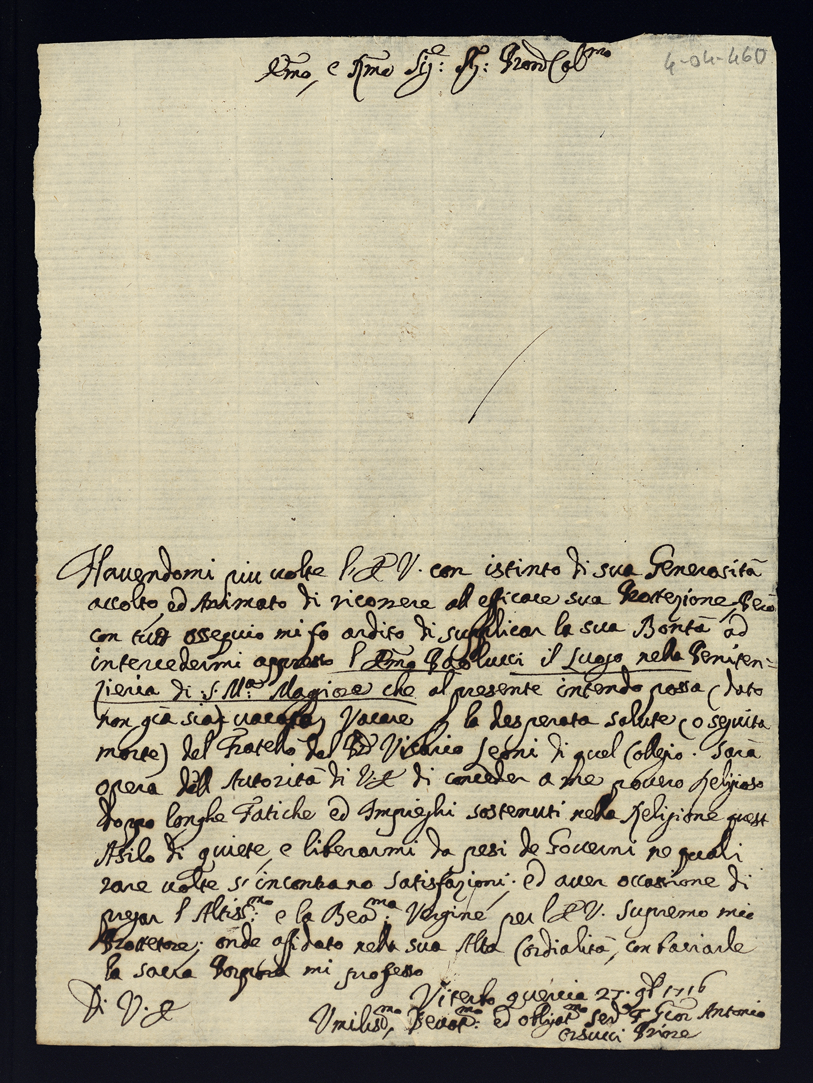 4-04-460
Emo, e Rmo Sig:e Sig: Pron Colmo
Havendomi piu volte l'E V. con istinto di sua Generosità
accolto, ed Animato di ricorrere all efficace sua Protezione, Però
con tutt ossequio mi fo ardito di supplicar la sua Bontà ad
intercedermi appresso l Emo Paolucci il Luogo nella Peniten=
zieria di S. Ma Maggiore che al presente intendo possa (dato
non già sia) Vacare p la desperata salute (o seguita
morte) del Fratello del Vicario Leoni di quel Collegio. Sarà
opera dell Autorità di V.E di conceder a me povero Religioso
doppo longhe Fatiche ed Impieghi sostenuti nella Religione quest
Asilo di quiete, e liberarmi da pesi de Governi ne quali
rare volte s'incontrano satisfazioni; ed aver occasione di
pregar l Altissmo e la Beama Vergine per l'E V. supremo mio
Protettore; onde affidato nella sua Alta Cordialità, con baciarle
la sacra Porpora mi professo
Di V. E
Viterbo quercia 27. 9b 1716
Umilismo, Devotmo: ed obligatmo Serv F Gior Antonio
Orsucci Priore